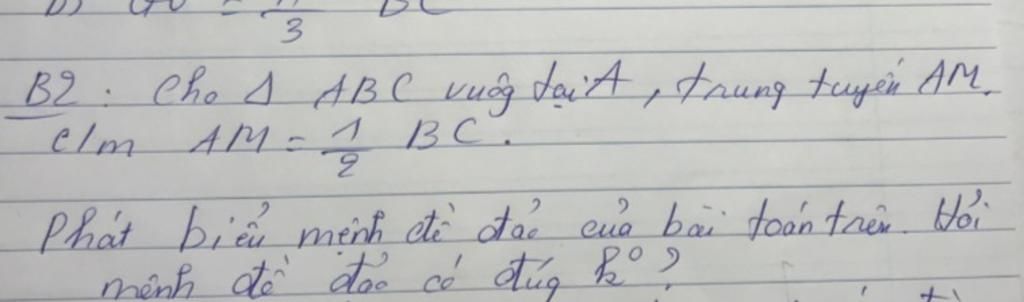 3
B2: Cho Δ ABC vuôg tại A, trung tuyến AM.
c/m AM = 1/2 BC.
Phát biểu mệnh đề đảo của bài toán trên. Hỏi
mệnh đề đảo có đúg k°?